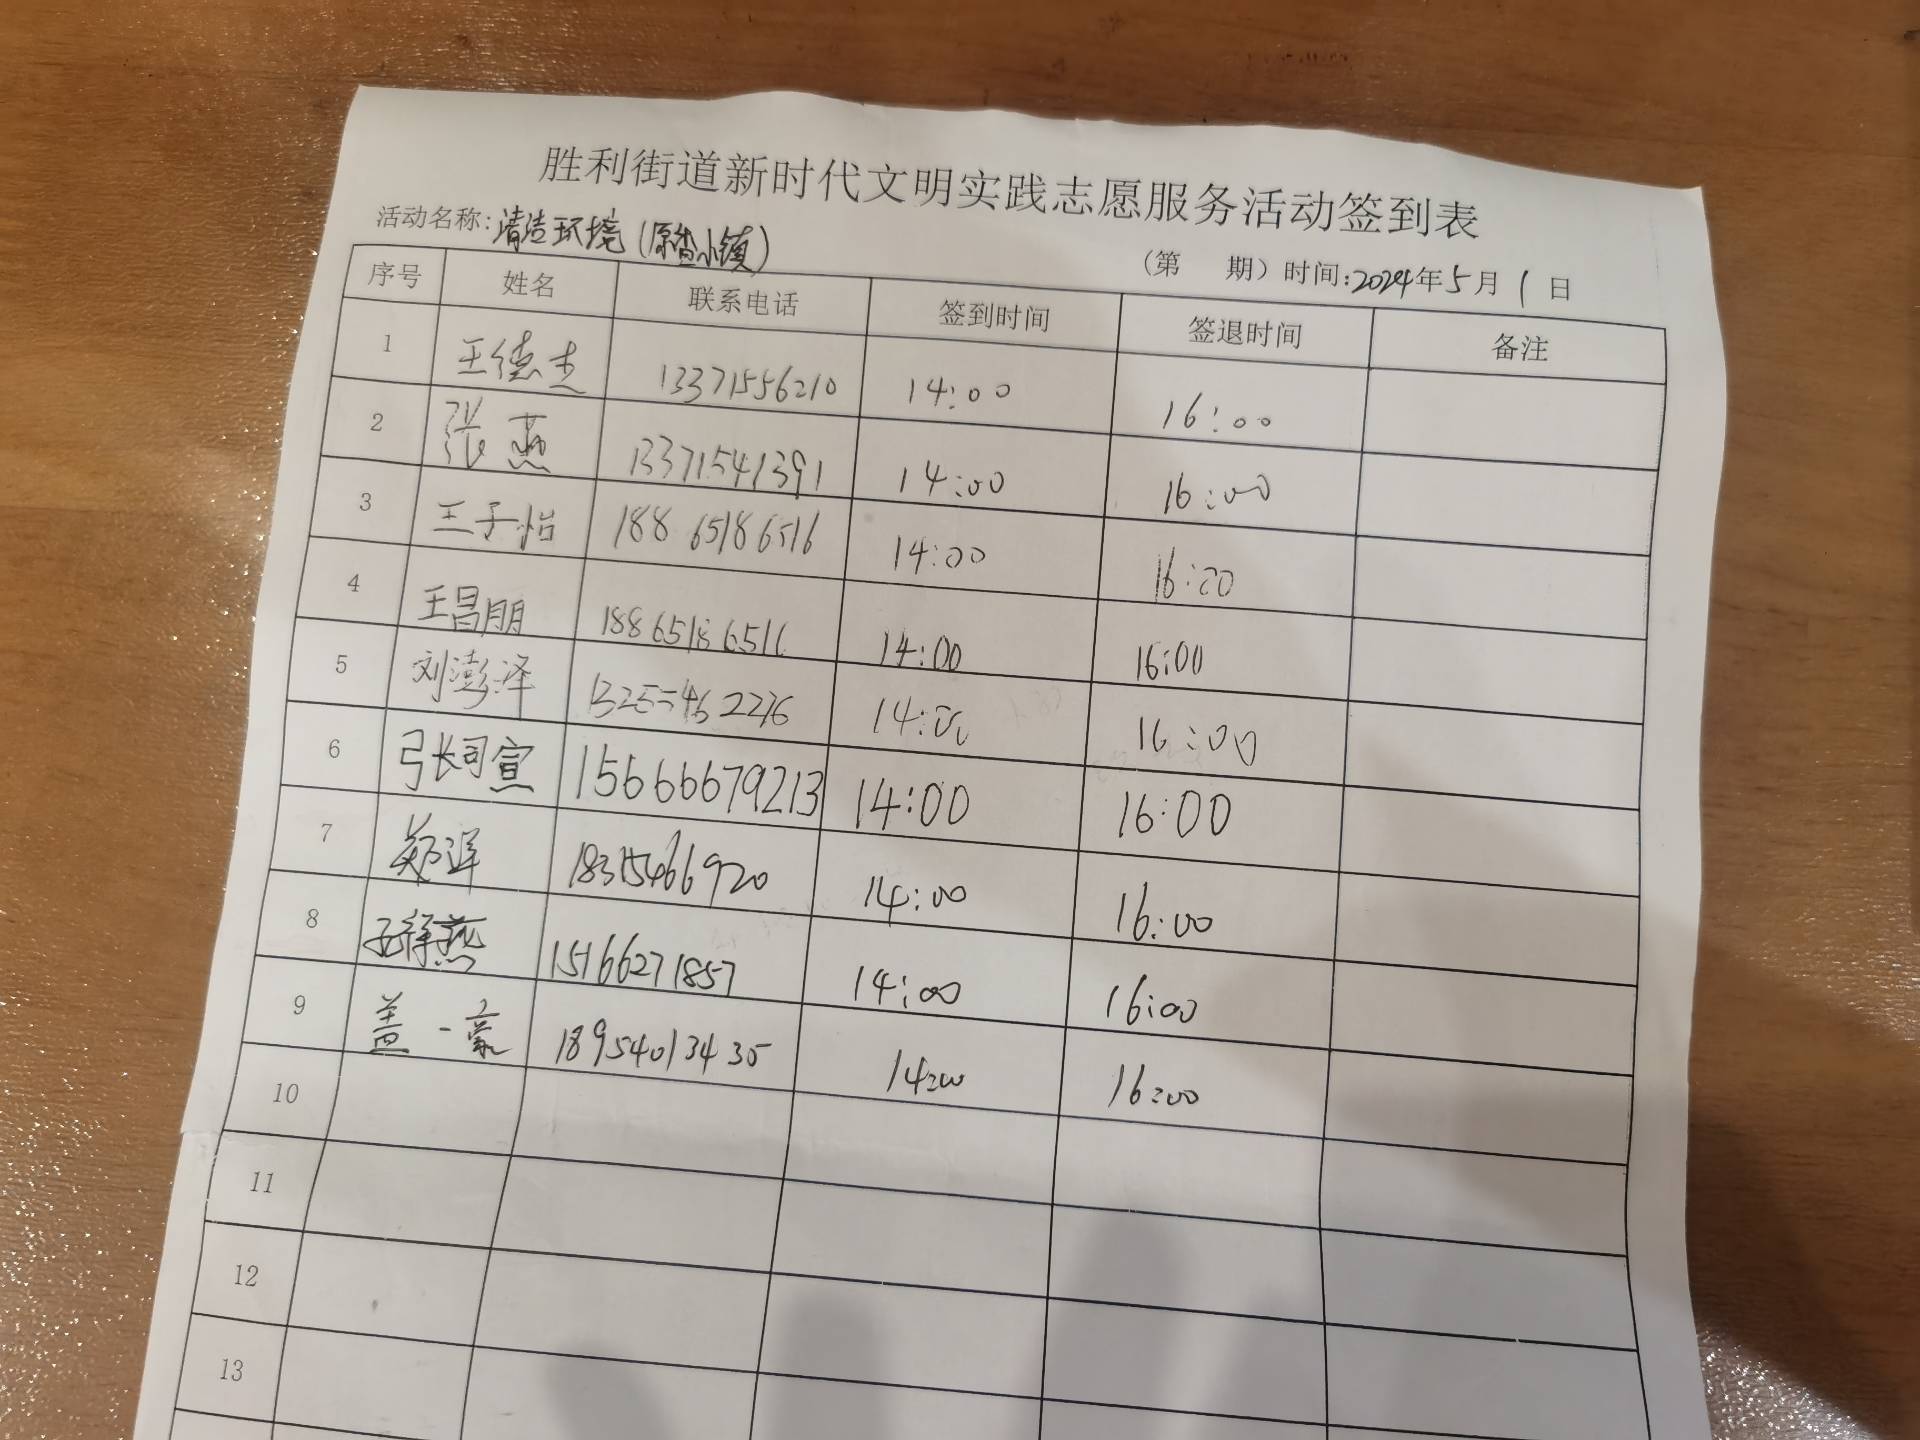 胜利街道新时代文明实践志愿服务活动签到表
活动名称:清洁环境(原香小镇)
(第 期)时间:2024年5月1日
序号 姓名 联系电话 签到时间 签退时间 备注
1 王德杰 13371556210 14:00 16:00
2 张燕 13371541391 14:00 16:00
3 王子怡 18865186516 14:00 16:00
4 王昌朋 18865186516 14:00 16:00
5 刘澎泽 14:00 16:00
6 张司宣 15666679213 14:00 16:00
7 郑 18315466920 14:00 16:00
8 燕 15166271857 14:00 16:00
9 盖一豪 18954013435 14:00 16:00
10
11
12
13